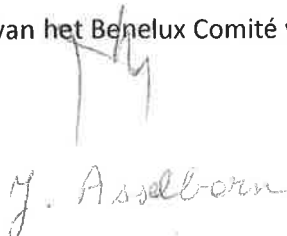 van het Benelux Comité v
J. Asselborn